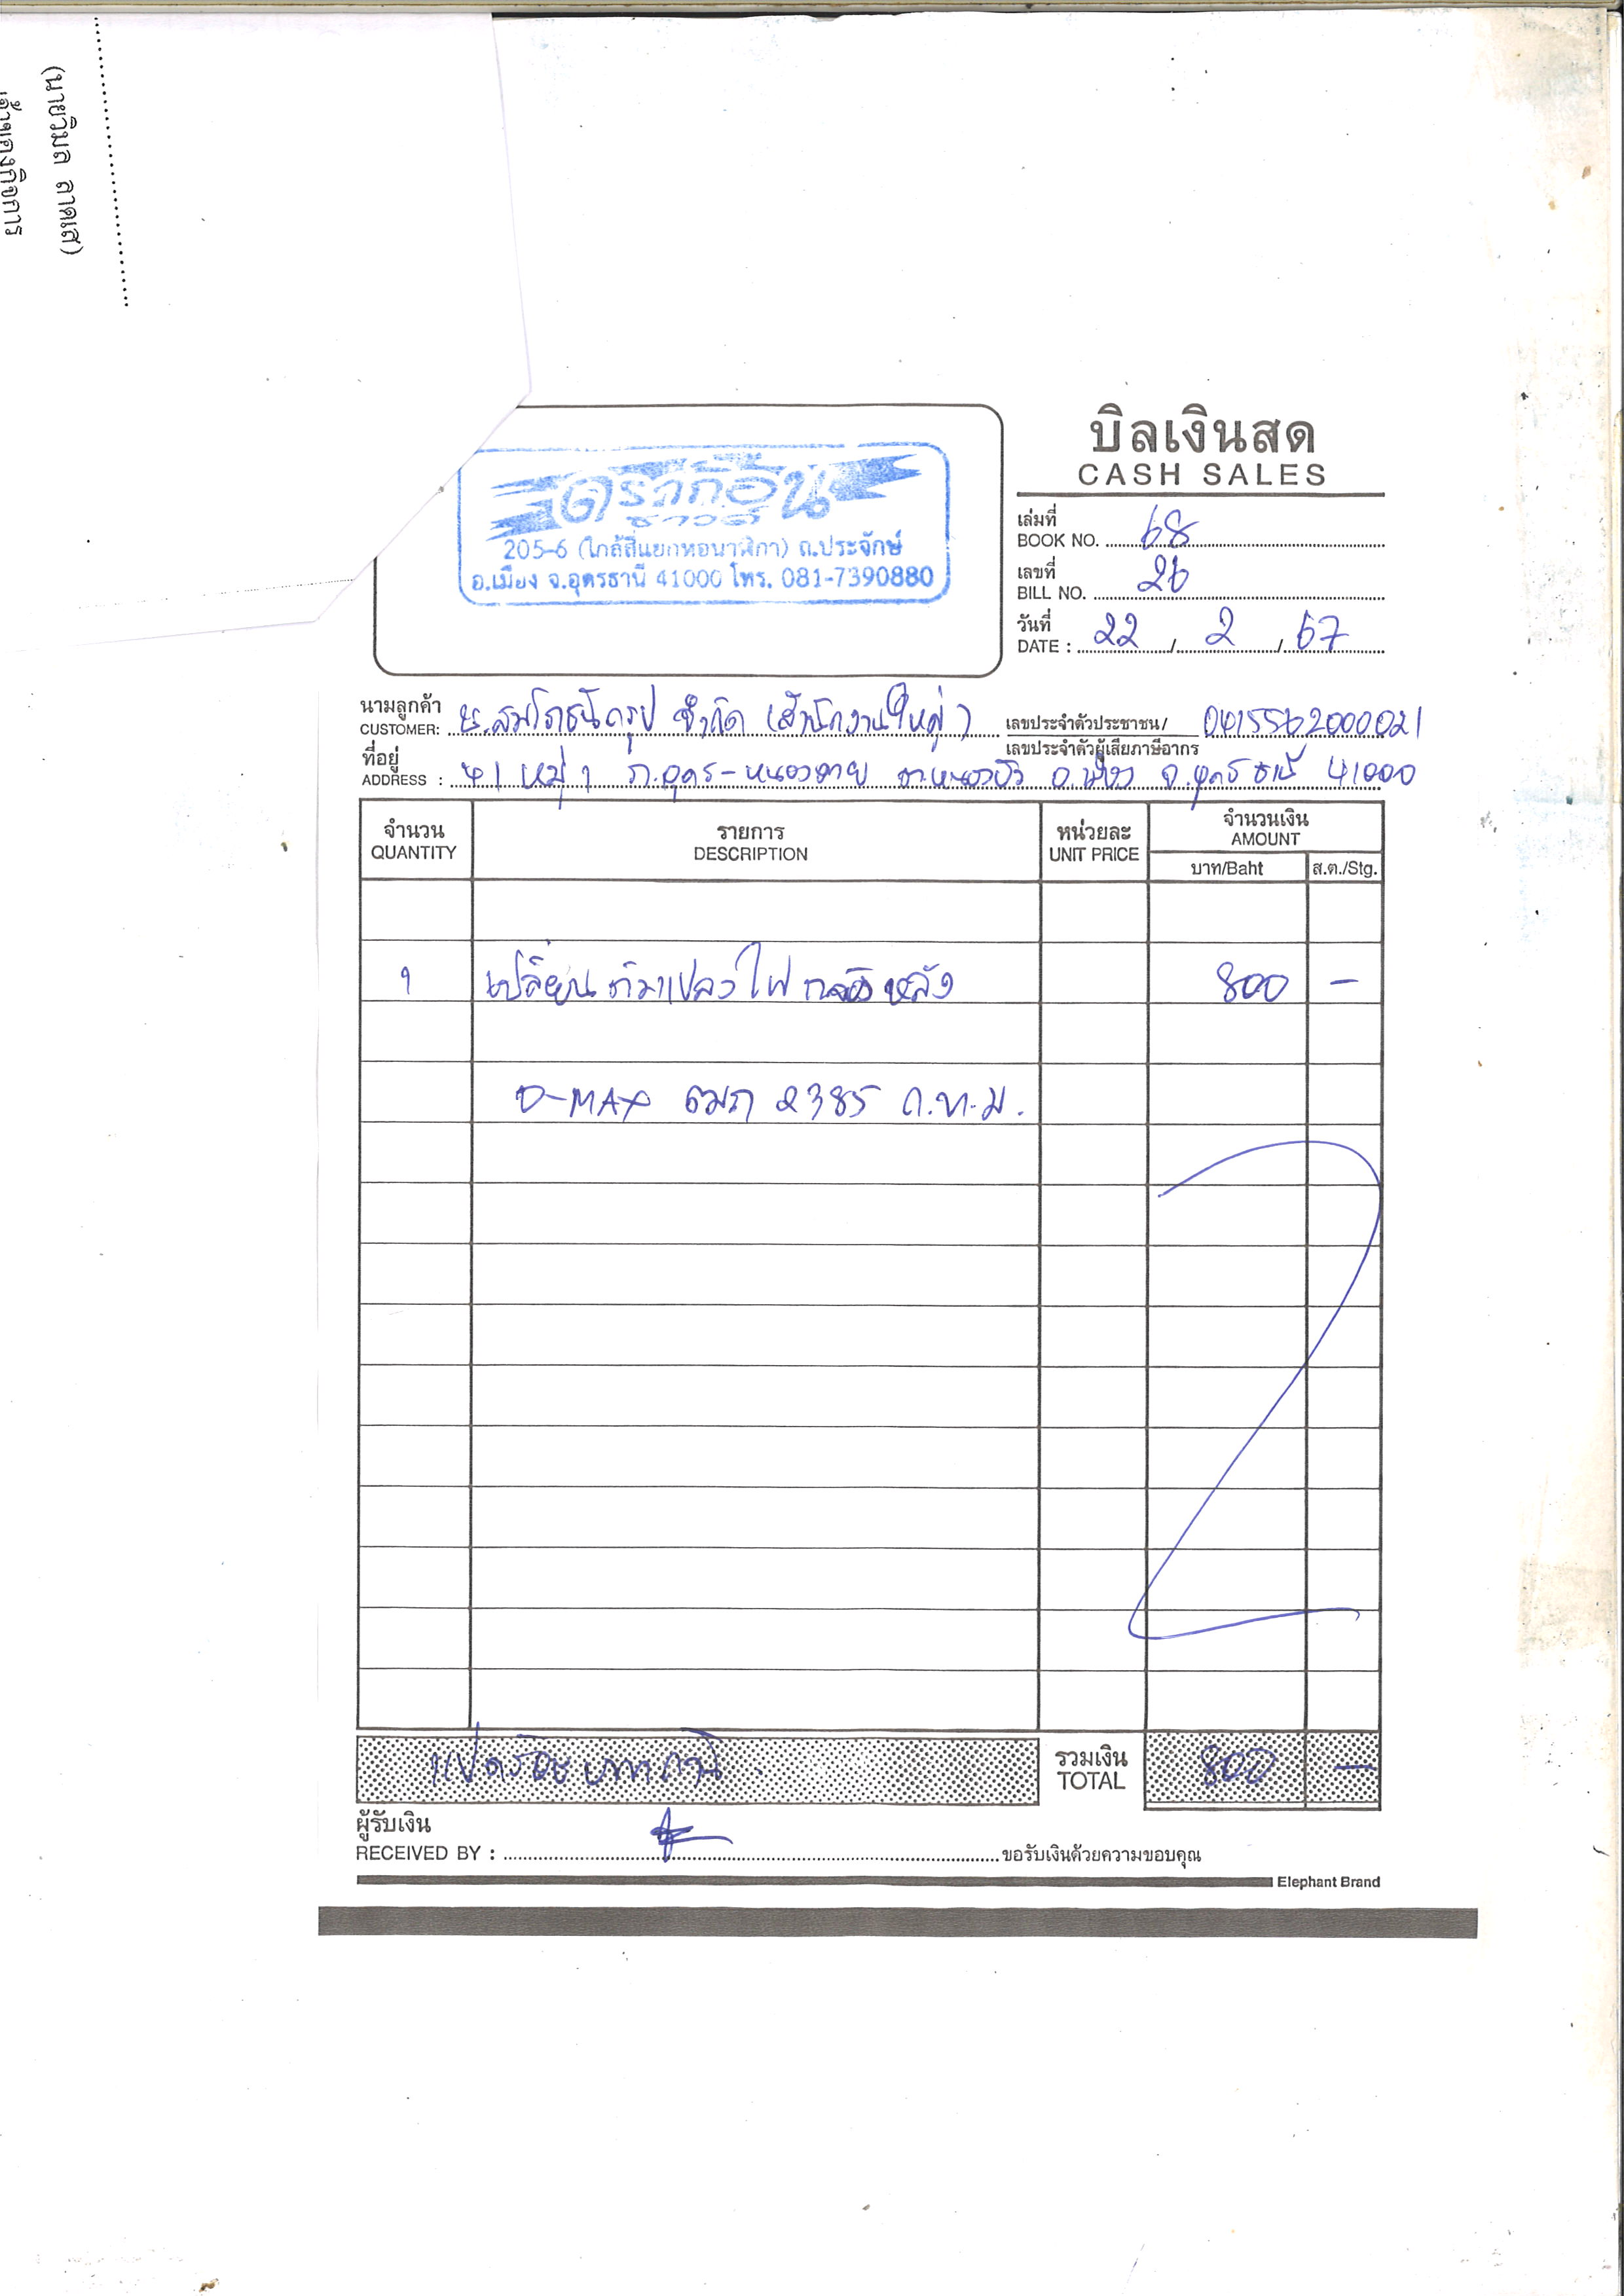 (นายวิมล ลาดเส)
เจ้าของกิจการ
ดราก้อน
ซาวด์
205-6 (ใกล้สี่แยกหอนาฬิกา) ถ.ประจักษ์
อ.เมือง จ.อุดรธานี 41000 โทร. 081-7390880
บิลเงินสด
CASH SALES
เล่มที่
BOOK NO. 68
เลขที่
BILL NO. 26
วันที่
DATE : 22 / 2 / 67
นามลูกค้า
CUSTOMER: จำกัด (สำนักงานใหญ่)
เลขประจำตัวประชาชน/
เลขประจำตัวผู้เสียภาษีอากร 0415562000021
ที่อยู่
ADDRESS : 41 หมู่ 1 ถ.อุดร-หนองคาย ต.หนองบัว อ.เมือง จ.อุดรธานี 41000
จำนวน
QUANTITY
รายการ
DESCRIPTION
หน่วยละ
UNIT PRICE
จำนวนเงิน
AMOUNT
บาท/Baht ส.ต./Stg.
1 เปลี่ยน ตัวแปลงไฟ กล้องหลัง 800 -
D-MAX 2385 ก.ท.ม.
แปดร้อยบาทถ้วน
รวมเงิน
TOTAL 800 -
ผู้รับเงิน
RECEIVED BY : ขอรับเงินด้วยความขอบคุณ
Elephant Brand